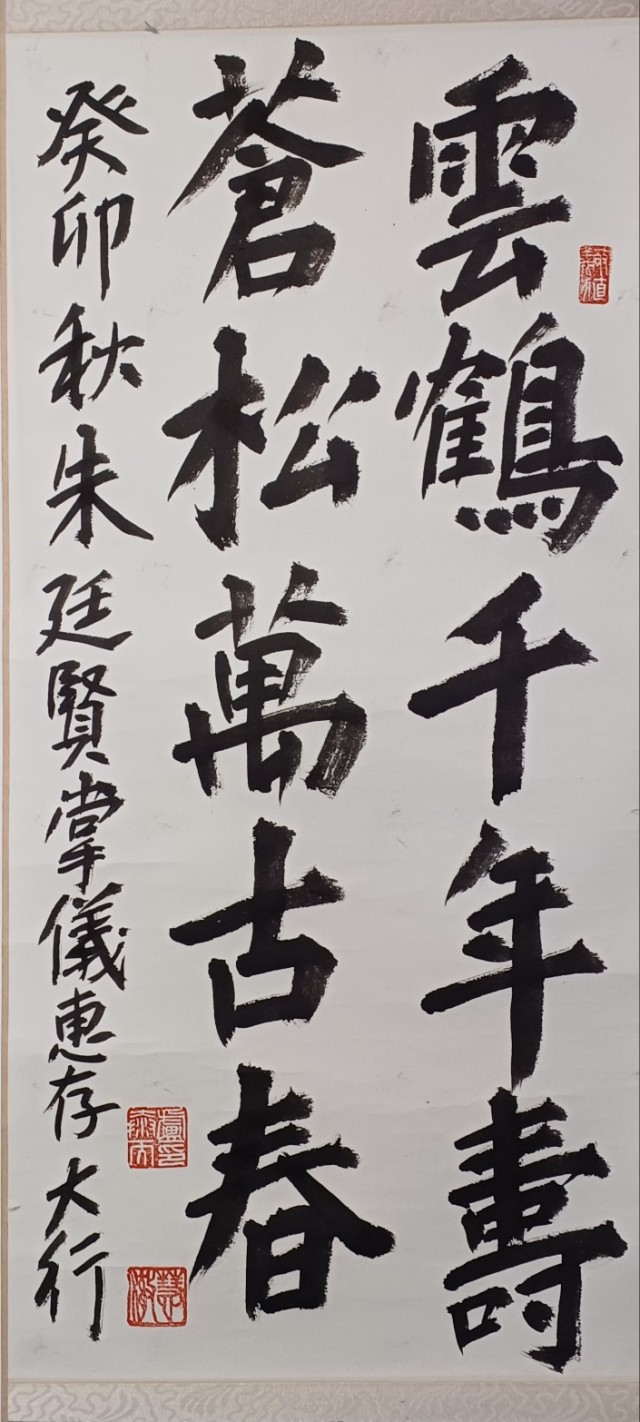 雲鶴千年壽
蒼松萬古春
癸卯秋朱廷賢掌儀惠存大行